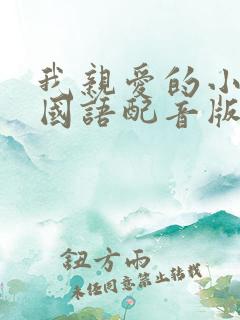 我親愛的小
國語配音版
鈕方雨
未經同意禁止轉載